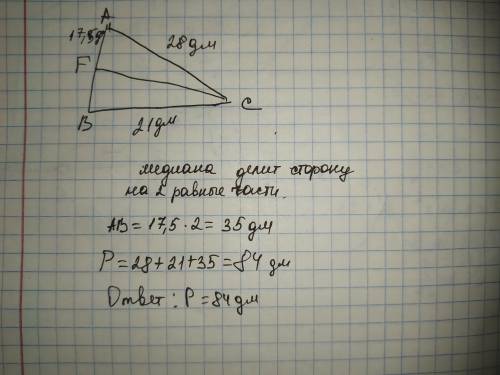 A
17,5д
28 дм
F
B
21 дм
C
медиана делит сторону
на 2 равные части.
AB = 17,5 · 2 = 35 дм
P = 28 + 21 + 35 = 84 дм
Ответ: P = 84 дм